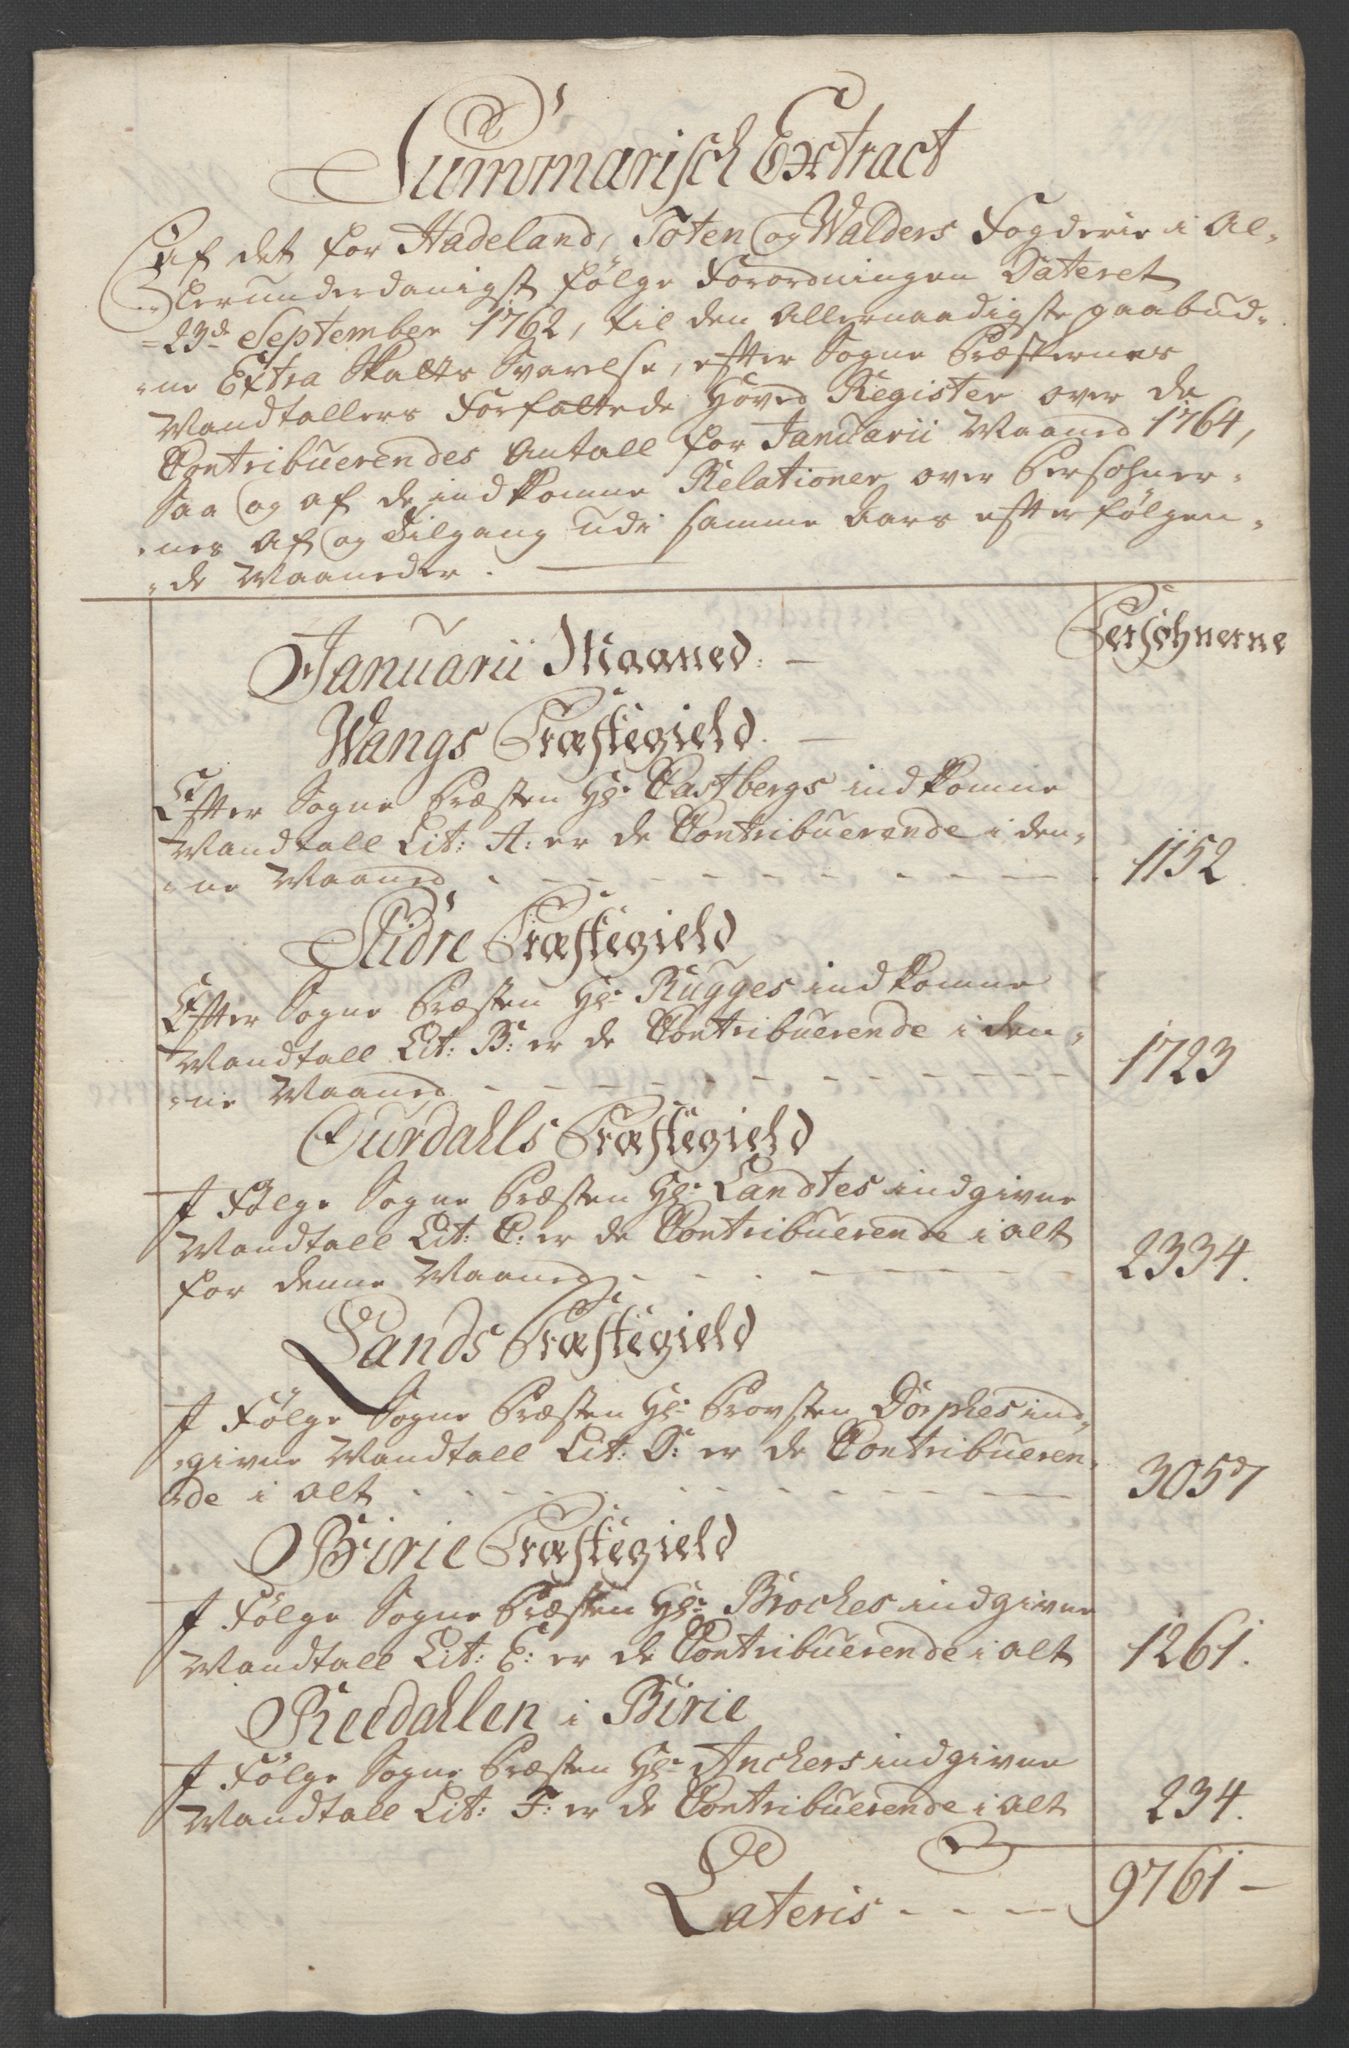 Summarisch Extract
af det for Hadeland, Toten og Walders Fogderie i Al-
lerunderdanigst følge Forordningen Dateret
23de September 1762, til den Allernaadigste paabud-
ne Extra Skatts Svarelse, efter Sogne Præsternes
Mandtallers Forfattede Hoved Register over de
Contribuerendes Antall for Januarii Maaned 1764,
Saa og af de indkomne Relationer over Persohner-
nes Af og Tilgang udi samme Aars efterfølgen-
de Maaneder.
Persohnerne
Januarii Maaned.
Wangs Præstegield.
Efter Sogne Præsten Hr. Castbergs indkomne
Mandtall Lit: A: er de Contribuerende i den-
ne Maaned - - - 1152
Slidre Præstegield
Efter Sogne Præsten Hr. Rugges indkomne
Mandtall Lit: B: er de Contribuerende i den-
ne Maaned - - - 1723
Ourdahls Præstegield
I Følge Sogne Præsten Hr. Landtes indgivne
Mandtall Lit: C: er de Contribuerende i alt
for denne Maaned - - - 2334.
Lands Præstegield
I Følge Sogne Præsten Hr. Provsten Dorphes ind-
givne Mandtall Lit: D: er de Contribueren-
de i alt - - - 3057
Birie Præstegield
I Følge Sogne Præsten Hr. Broches indgivne
Mandtall Lit: E: er de Contribuerende i alt 1261.
Reedahlen i Birie
I Følge Sogne Præsten Hr. Anchers indgivne
Mandtall Lit: F: er de Contribuerende i alt 234.
Lateris - - - 9761 -